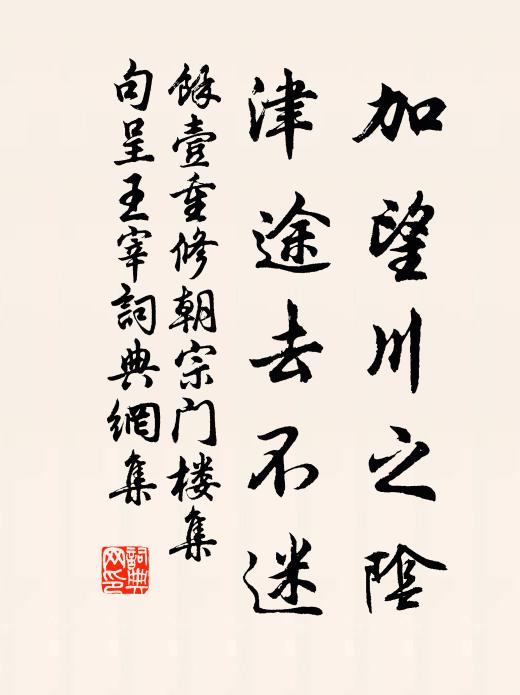 加望川之陰
津途去不迷
餘壹重修朝宗门楼集
句呈王宰詞典網集
詞典网印